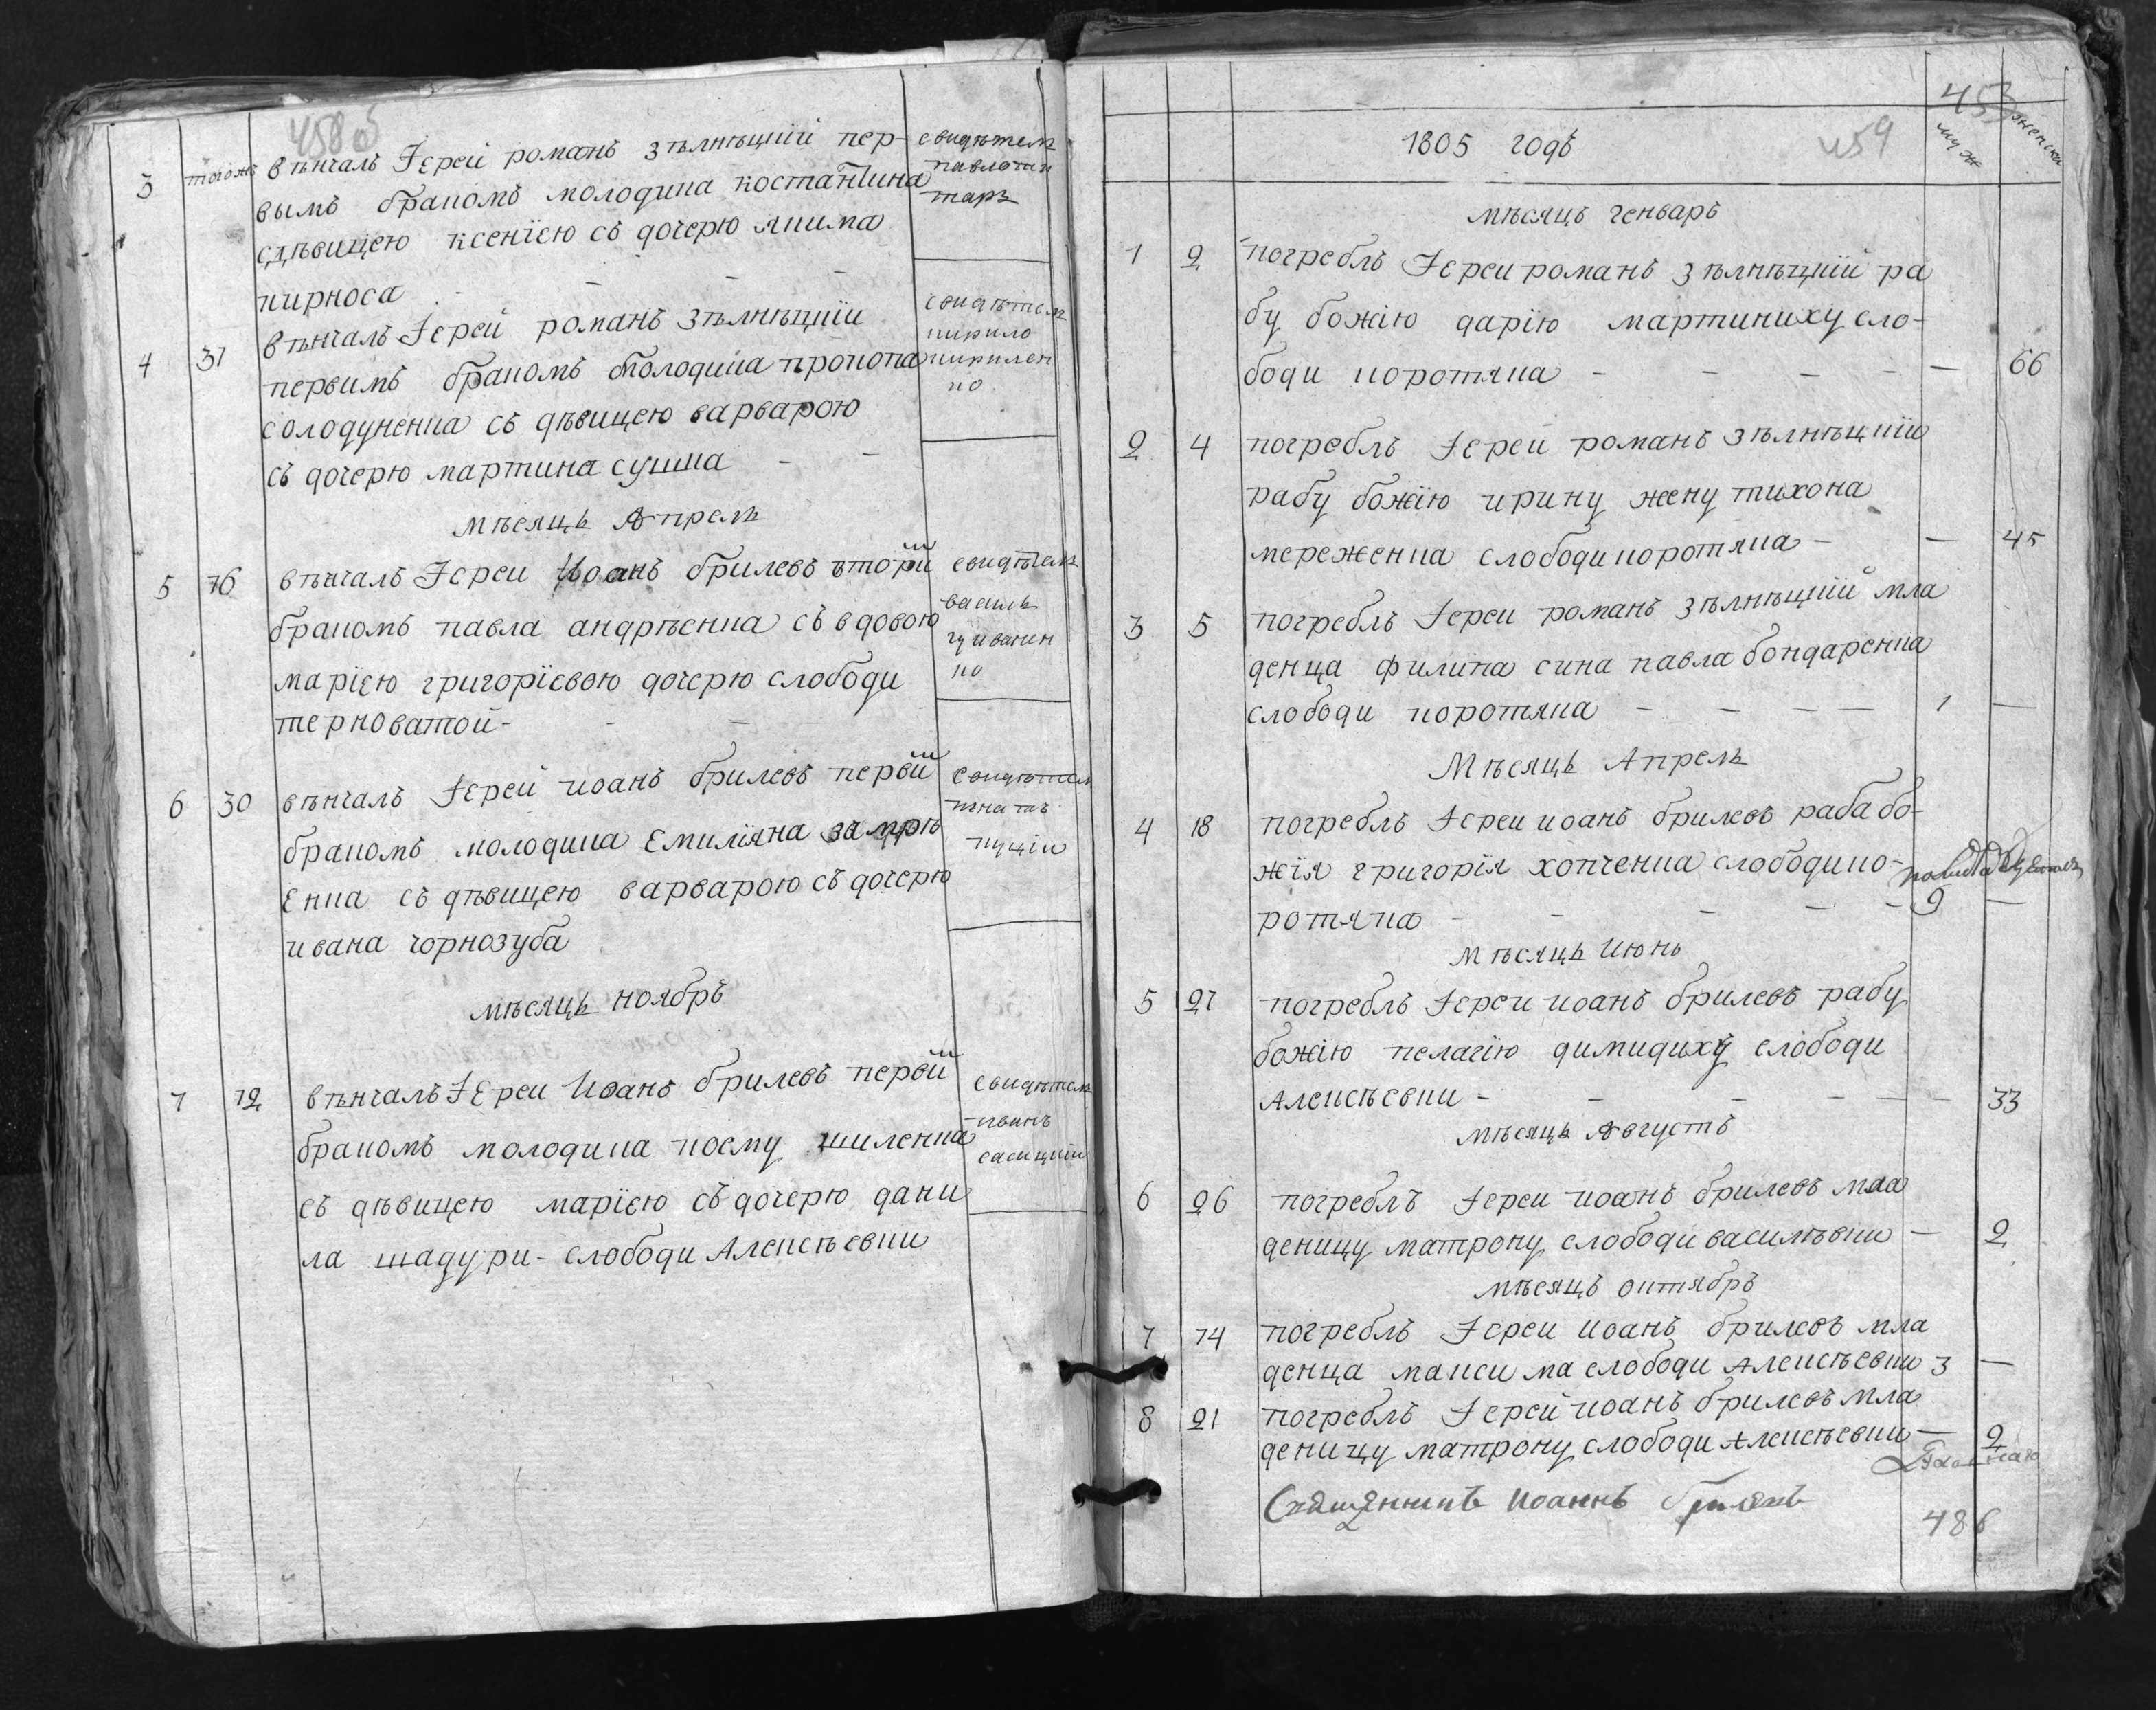 458 об
3 тогожъ вѣнчалъ Іерей романъ зѣлнѣцкій пер-
вымъ бракомъ молодика костантина
сдѣвицею ксенїею съ дочерю якима
кирноса
свидѣтель
павло
тарь
4 31 вѣнчалъ Іерей романъ зѣлнѣцкіи
первимъ бракомъ молодика прокопа
солодуненка съ дѣвицею варварою
съ дочерю мартина сушка
свидѣтель
кирило
кирилен
ко
мѣсяць Апрель
5 16 вѣнчалъ Іереи Иоанъ брилевъ вторїй
бракомъ павла андрѣенка съ вдовою
марїею григорїевою дочерю слободи
терноватой
свидѣтель
василь
ко
6 30 вѣнчалъ Іерей иоанъ брилевъ первїй
бракомъ молодика емилїяна
енка съ дѣвицею варварою съ дочерю
ивана чорнозуба
свидѣтель
игнатъ
мѣсяць ноябръ
7 12 вѣнчалъ Іереи Иоанъ брилевъ первїй
бракомъ молодика косму шиленка
съ дѣвицею марїею съ дочерю дани
ла шадури - слободи Алексѣевки
свидѣтель
иванъ
453
1805 годъ 459 муж женски
мѣсяцъ генваръ
1 2 погреблъ Іереи романъ зѣлнѣцкїй ра
бу божїю дарїю мартиниху сло-
боди коротяка - - - - — 66
2 4 погреблъ Іерей романъ зѣлнѣцкїи
рабу божїю ирину жену тихона
мереженка слободи коротяка - — 45
3 5 погреблъ Іереи романъ зѣлнѣцкїй мла
денца филипа сина павла бондаренка
слободи коротяка - - - — 1 —
Мѣсяць Апрель
4 18 погреблъ Іереи иоанъ брилевъ раба бо-
жїя григорїя хопченка слободи ко-
ротяка - - - - - 9 —
мѣсяць Июнь
5 27 погреблъ Іереи иоанъ брилевъ рабу
божїю пелагїю димидиху слободи
Алексѣевки - - - - - — 33
мѣсяць Августъ
6 26 погреблъ Іереи иоанъ брилевъ мла
деницу матрону слободи василѣвки — 2
мѣсяцъ октябръ
7 14 погреблъ Іереи иоанъ брилевъ мла
денца максима слободи Алексѣевки 3 —
8 21 погреблъ Іерей иоанъ брилевъ мла
деницу матрону слободи Алексѣевки — 2
Священникъ Иоаннъ Брилевъ
486